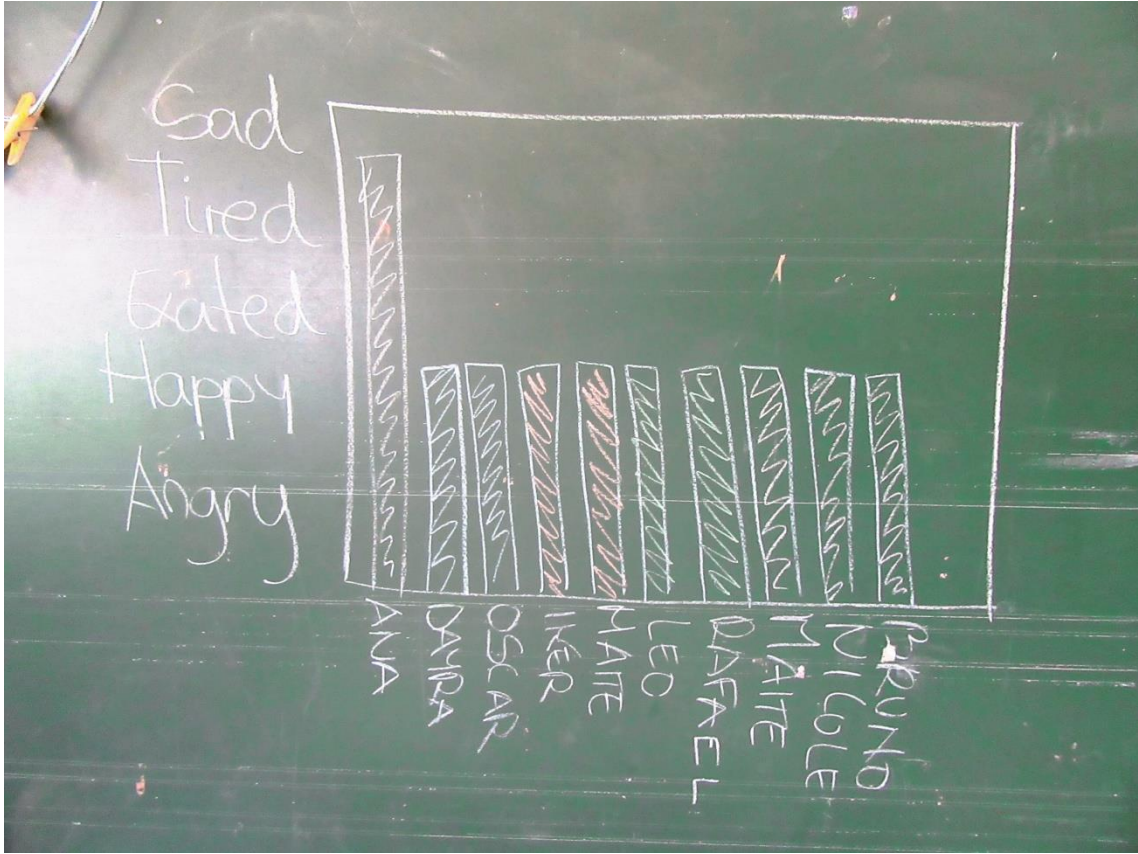 Sad
Tired
Exated
Happy
Angry
ANA
DAYRA
OSCAR
IKER
MAITE
LEO
RAFAEL
MAITE
NICOLE
BRUNO